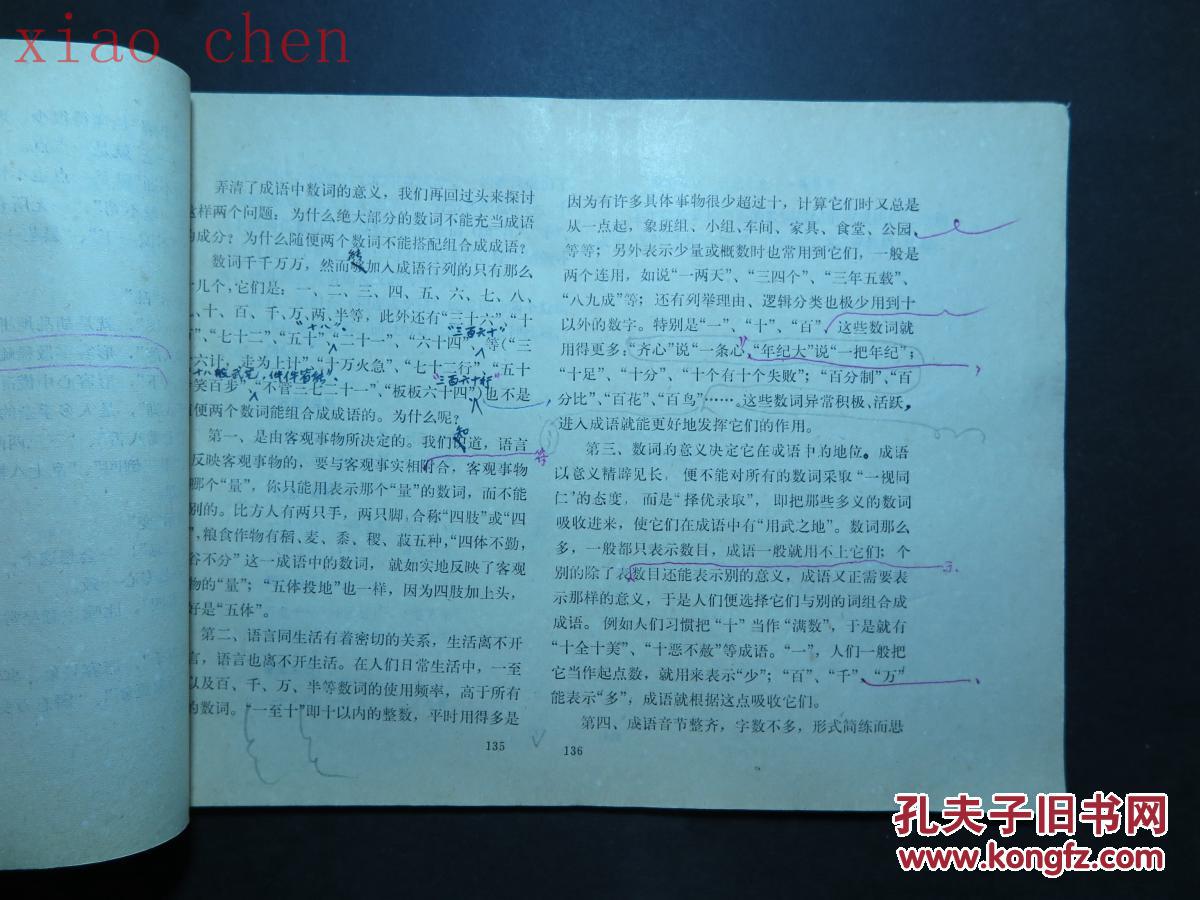 xiao chen
弄清了成语中数词的意义，我们再回过头来探讨
这样两个问题：为什么绝大部分的数词不能充当成语
的成分？为什么随便两个数词不能搭配组合成成语？
数词千千万万，然而能加入成语行列的只有那么
几个，它们是：一、二、三、四、五、六、七、八、
、十、百、千、万、两、半等，此外还有“三十六”、“十
”、“七十二”、“五十”、“二十一”、“六十四”、等（“三
“十八”、
“三百六十”
六计，走为上计”、“十万火急”、“七十二行”、“五十
笑百步”、“不管三七二十一”、“板板六十四”）也不是
便两个数词能组合成成语的。为什么呢？
第一、是由客观事物所决定的。我们知道，语言
反映客观事物的，要与客观事实相符合，客观事物
哪个“量”，你只能用表示那个“量”的数词，而不能
别的。比方人有两只手，两只脚，合称“四肢”或“四
”，粮食作物有稻、麦、黍、稷、菽五种，“四体不勤，
谷不分”这一成语中的数词，就如实地反映了客观
物的“量”；“五体投地”也一样，因为四肢加上头，
好是“五体”。
第二、语言同生活有着密切的关系，生活离不开
言，语言也离不开生活。在人们日常生活中，一至
以及百、千、万、半等数词的使用频率，高于所有
的数词。“一至十”即十以内的整数，平时用得多是
135
因为有许多具体事物很少超过十，计算它们时又总是
从一点起，象班组、小组、车间、家具、食堂、公园、
等等；另外表示少量或概数时也常用到它们，一般是
两个连用，如说“一两天”、“三四个”、“三年五载”、
“八九成”等；还有列举理由、逻辑分类也极少用到十
以外的数字。特别是“一”、“十”、“百”，这些数词就
用得更多：“齐心”说“一条心”，“年纪大”说“一把年纪”；
“十足”、“十分”、“十个有十个失败”；“百分制”、“百
分比”、“百花”、“百鸟”……。这些数词异常积极、活跃，
进入成语就能更好地发挥它们的作用。
第三、数词的意义决定它在成语中的地位。成语
以意义精辟见长，便不能对所有的数词采取“一视同
仁”的态度，而是“择优录取”，即把那些多义的数词
吸收进来，使它们在成语中有“用武之地”。数词那么
多，一般都只表示数目，成语一般就用不上它们；个
别的除了表数目还能表示别的意义，成语又正需要表
示那样的意义，于是人们便选择它们与别的词组合成
成语。例如人们习惯把“十”当作“满数”，于是就有
“十全十美”、“十恶不赦”等成语。“一”，人们一般把
它当作起点数，就用来表示“少”；“百”、“千”、“万”
能表示“多”，成语就根据这点吸收它们。
第四、成语音节整齐，字数不多，形式简练而思
136
孔夫子旧书网
www.kongfz.com